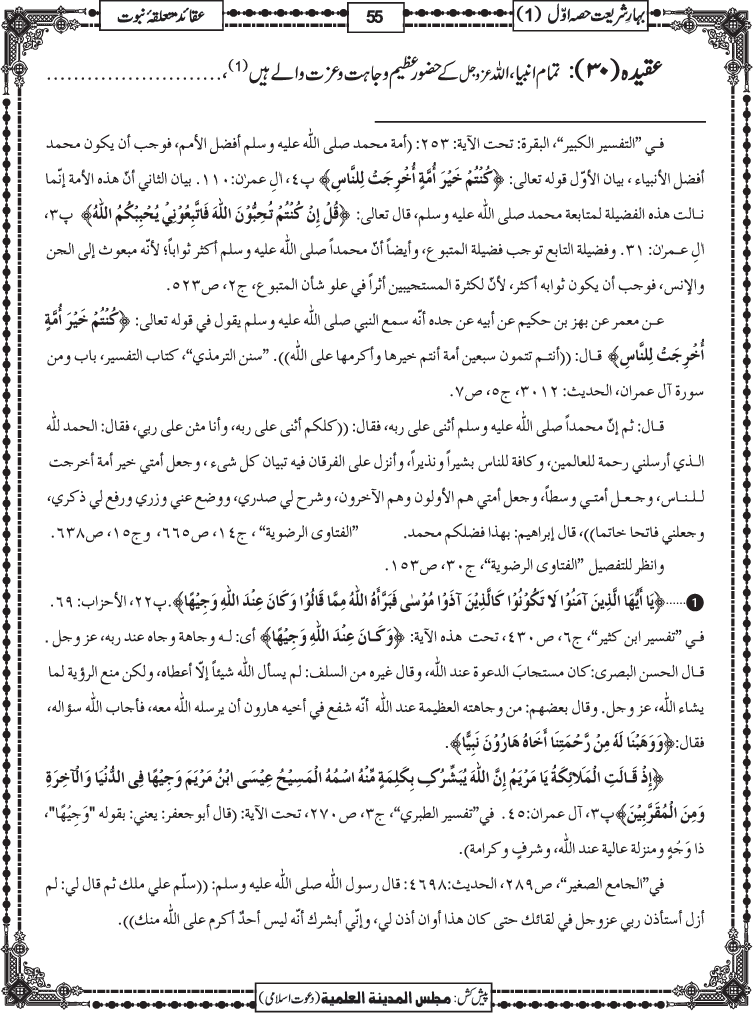 بہارِ شریعت حصہ اوّل (1)
55
عقائد متعلقۂ نبوت
عقیدہ (۳۰): تمام انبیا، اللہ عزوجل کے حضور عظیم وجاہت و عزت والے ہیں (1)، ..........................
فـي ”التفسير الكبير“، البقرة: تحت الآية: ٢٥٣: (أمة محمد صلى الله عليه وسلم أفضل الأمم، فوجب أن يكون محمد
أفضل الأنبياء ، بيان الأوّل قوله تعالى: ﴿كُنْتُمْ خَيْرَ أُمَّةٍ أُخْرِجَتْ لِلنَّاسِ﴾ پ٤، الِ عمرٰن:١١٠. بيان الثاني أنّ هذه الأمة إنّما
نـالت هذه الفضيلة لمتابعة محمد صلى الله عليه وسلم، قال تعالى: ﴿قُلْ إِنْ كُنْتُمْ تُحِبُّوْنَ اللهَ فَاتَّبِعُوْنِيْ يُحْبِبْكُمُ اللهُ﴾ پ٣،
الِ عـمرٰن: ٣١. وفضيلة التابع توجب فضيلة المتبوع، وأيضاً أنّ محمداً صلى الله عليه وسلم أكثر ثواباً؛ لأنّه مبعوث إلى الجن
والإنس، فوجب أن يكون ثوابه أكثر، لأنّ لكثرة المستجيبين أثراً في علو شأن المتبوع، ج٢، ص٥٢٣.
عـن معمر عن بهز بن حكيم عن أبيه عن جده أنّه سمع النبي صلى الله عليه وسلم يقول في قوله تعالى: ﴿كُنْتُمْ خَيْرَ أُمَّةٍ
أُخْرِجَتْ لِلنَّاسِ﴾ قـال: ((أنتـم تتمون سبعين أمة أنتم خيرها وأكرمها على الله)). ”سنن الترمذي“، كتاب التفسير، باب ومن
سورة آل عمران، الحديث: ٣٠١٢، ج٥، ص٧.
قـال: ثم إنّ محمداً صلى الله عليه وسلم أثنى على ربه، فقال: ((كلكم أثنى على ربه، وأنا مثن على ربي، فقال: الحمد لله
الـذي أرسلني رحمة للعالمين، وكافة للناس بشيراً ونذيراً، وأنزل علي الفرقان فيه تبيان كل شيء ، وجعل أمتي خير أمة أخرجت
للـنـاس، وجـعـل أمتـي وسطاً، وجعل أمتي هم الأولون وهم الآخرون، وشرح لي صدري، ووضع عني وزري ورفع لي ذكري،
وجعلني فاتحا خاتما))، قال إبراهيم: بهذا فضلكم محمد. ”الفتاوى الرضوية“ ، ج١٤، ص٦٦٥، وج١٥، ص٦٣٨.
وانظر للتفصيل ”الفتاوى الرضوية“، ج٣٠، ص١٥٣.
1 ......﴿يَا أَيُّهَا الَّذِينَ آمَنُوْا لَا تَكُوْنُوْا كَالَّذِيْنَ آذَوْا مُوْسٰى فَبَرَّأَهُ اللهُ مِمَّا قَالُوْا وَكَانَ عِنْدَ اللهِ وَجِيْهًا﴾.پ٢٢، الأحزاب: ٦٩.
فـي ”تفسير ابن كثير“، ج٦، ص٤٣٠، تحت هذه الآية: ﴿وَكَـانَ عِنْدَ اللهِ وَجِيْهًا﴾ أى: لـه وجاهة وجاه عند ربه، عز وجل .
قـال الحسن البصرى:كان مستجابَ الدعوة عند الله، وقال غيره من السلف: لم يسأل الله شيئاً إلّا أعطاه، ولكن منع الرؤية لما
يشاء الله، عز وجل. وقال بعضهم: من وجاهته العظيمة عند الله أنّه شفع في أخيه هارون أن يرسله الله معه، فأجاب الله سؤاله،
فقال:﴿وَوَهَبْنَا لَهُ مِنْ رَّحْمَتِنَا أَخَاهُ هَارُوْنَ نَبِيًّا﴾.
﴿إِذْ قَـالَتِ الْمَلَائِكَةُ يَا مَرْيَمُ إِنَّ اللهَ يُبَشِّرُكِ بِكَلِمَةٍ مِّنْهُ اسْمُهُ الْمَسِيْحُ عِيْسَى ابْنُ مَرْيَمَ وَجِيْهًا فِى الدُّنْيَا وَالْآخِرَةِ
وَمِنَ الْمُقَرَّبِيْنَ﴾پ٣، آل عمران:٤٥. في”تفسير الطبري“، ج٣، ص٢٧٠، تحت الآية: (قال أبوجعفر: يعني: بقوله "وَجِيْهًا"،
ذا وَجْهٍ ومنزلة عالية عند الله، وشرفٍ وكرامة).
في”الجامع الصغير“، ص٢٨٩، الحديث:٤٦٩٨: قال رسول الله صلى الله عليه وسلم: ((سلّم علي ملك ثم قال لي: لم
أزل أستأذن ربي عزوجل في لقائك حتى كان هذا أوان أذن لي، وإنّي أبشرك أنّه ليس أحدٌ أكرم على الله منك)).
پیش کش: مجلس المدینة العلمیة (دعوت اسلامی)